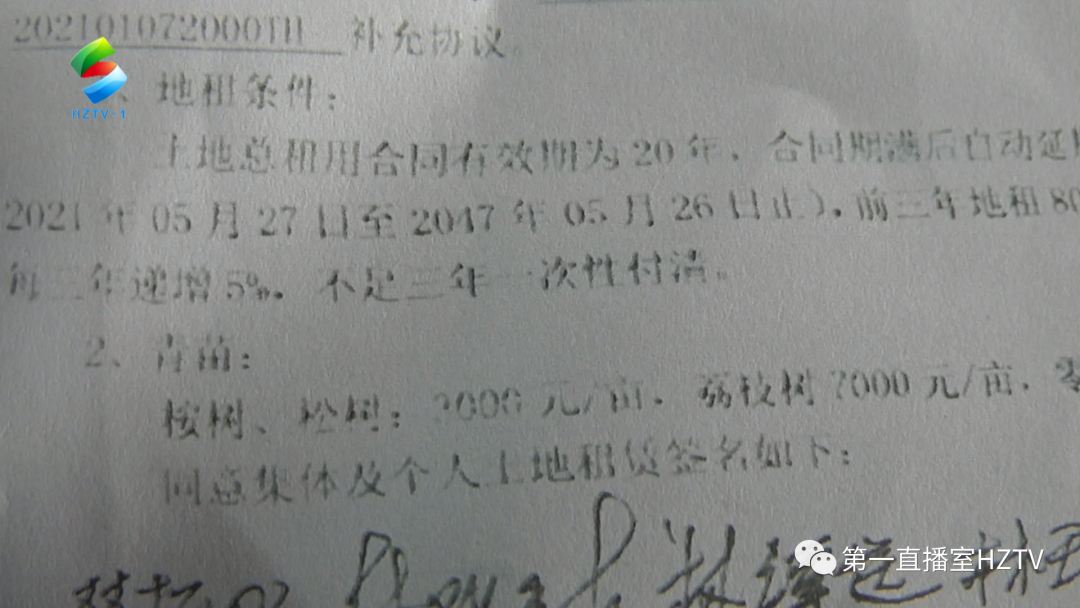 202101072000TH 补充协议
、地租条件：
HZTV-1
土地总租用合同有效期为20年，合同期满后自动延
2021年05月27日至2047年05月26日止），前三年地租80
每三年递增5%。不足三年一次性付清。
2、青苗：
桉树、松树：3000元/亩，荔枝树7000元/亩，零
同意集体及个人土地租赁签名如下：
第一直播室HZTV